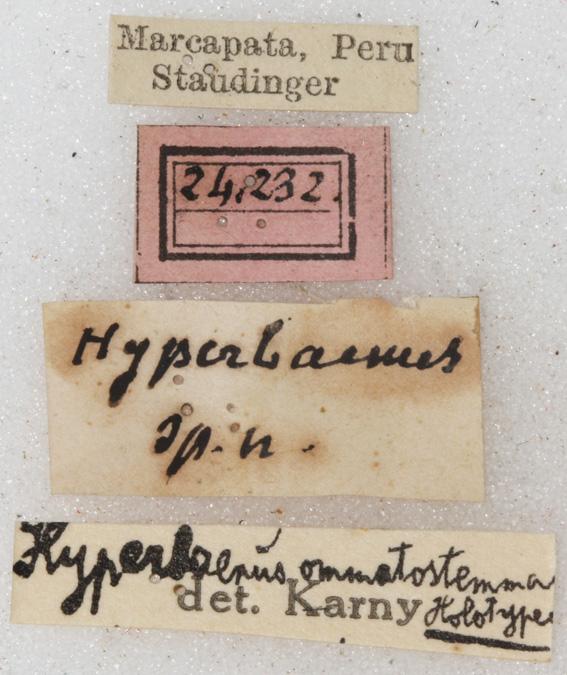 Marcapata, Peru
Staudinger
24,232.
Hyperbaenus
sp. n.
Hyperbaenus ommatostemma
det. Karny Holotype